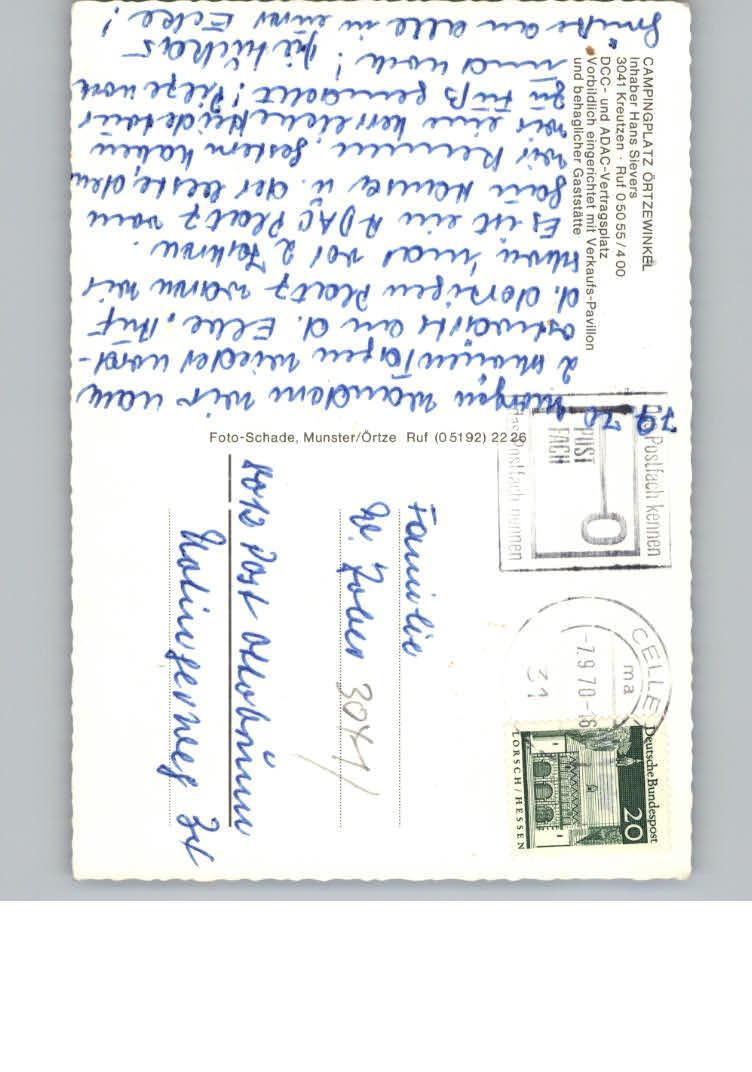 CAMPINGPLATZ ÖRTZEWINKEL
Inhaber Hans Sievers
3041 Kreutzen · Ruf 0 50 55 / 4 00
DCC- und ADAC-Vertragsplatz
Vorbildlich eingerichtet mit Verkaufs-Pavillon
und behaglicher Gaststätte
7.9.70
Morgen wandern wir nach
2 Tagen wieder nord-
ostwärts an d. Elbe. Auf
d. dortigen Platz waren wir
schon mal vor 2 Jahren.
Es ist ein ADAC Platz vom
Gau Hansa u. der beste, den
wir kennen. Gestern haben
wir eine herrliche Heidetour
zu Fuß gemacht! Pilze
und noch!
Grüße an alle in eurer Ecke!
Foto-Schade, Munster/Örtze Ruf (0 51 92) 22 26
Postfach kennen
POST
FACH
das Postfach nennen
CELLE
ma
-7.9.70-16
31
Deutsche Bundespost
20
LORSCH / HESSEN
Familie
3041
8012 Post Ottobrunn
34